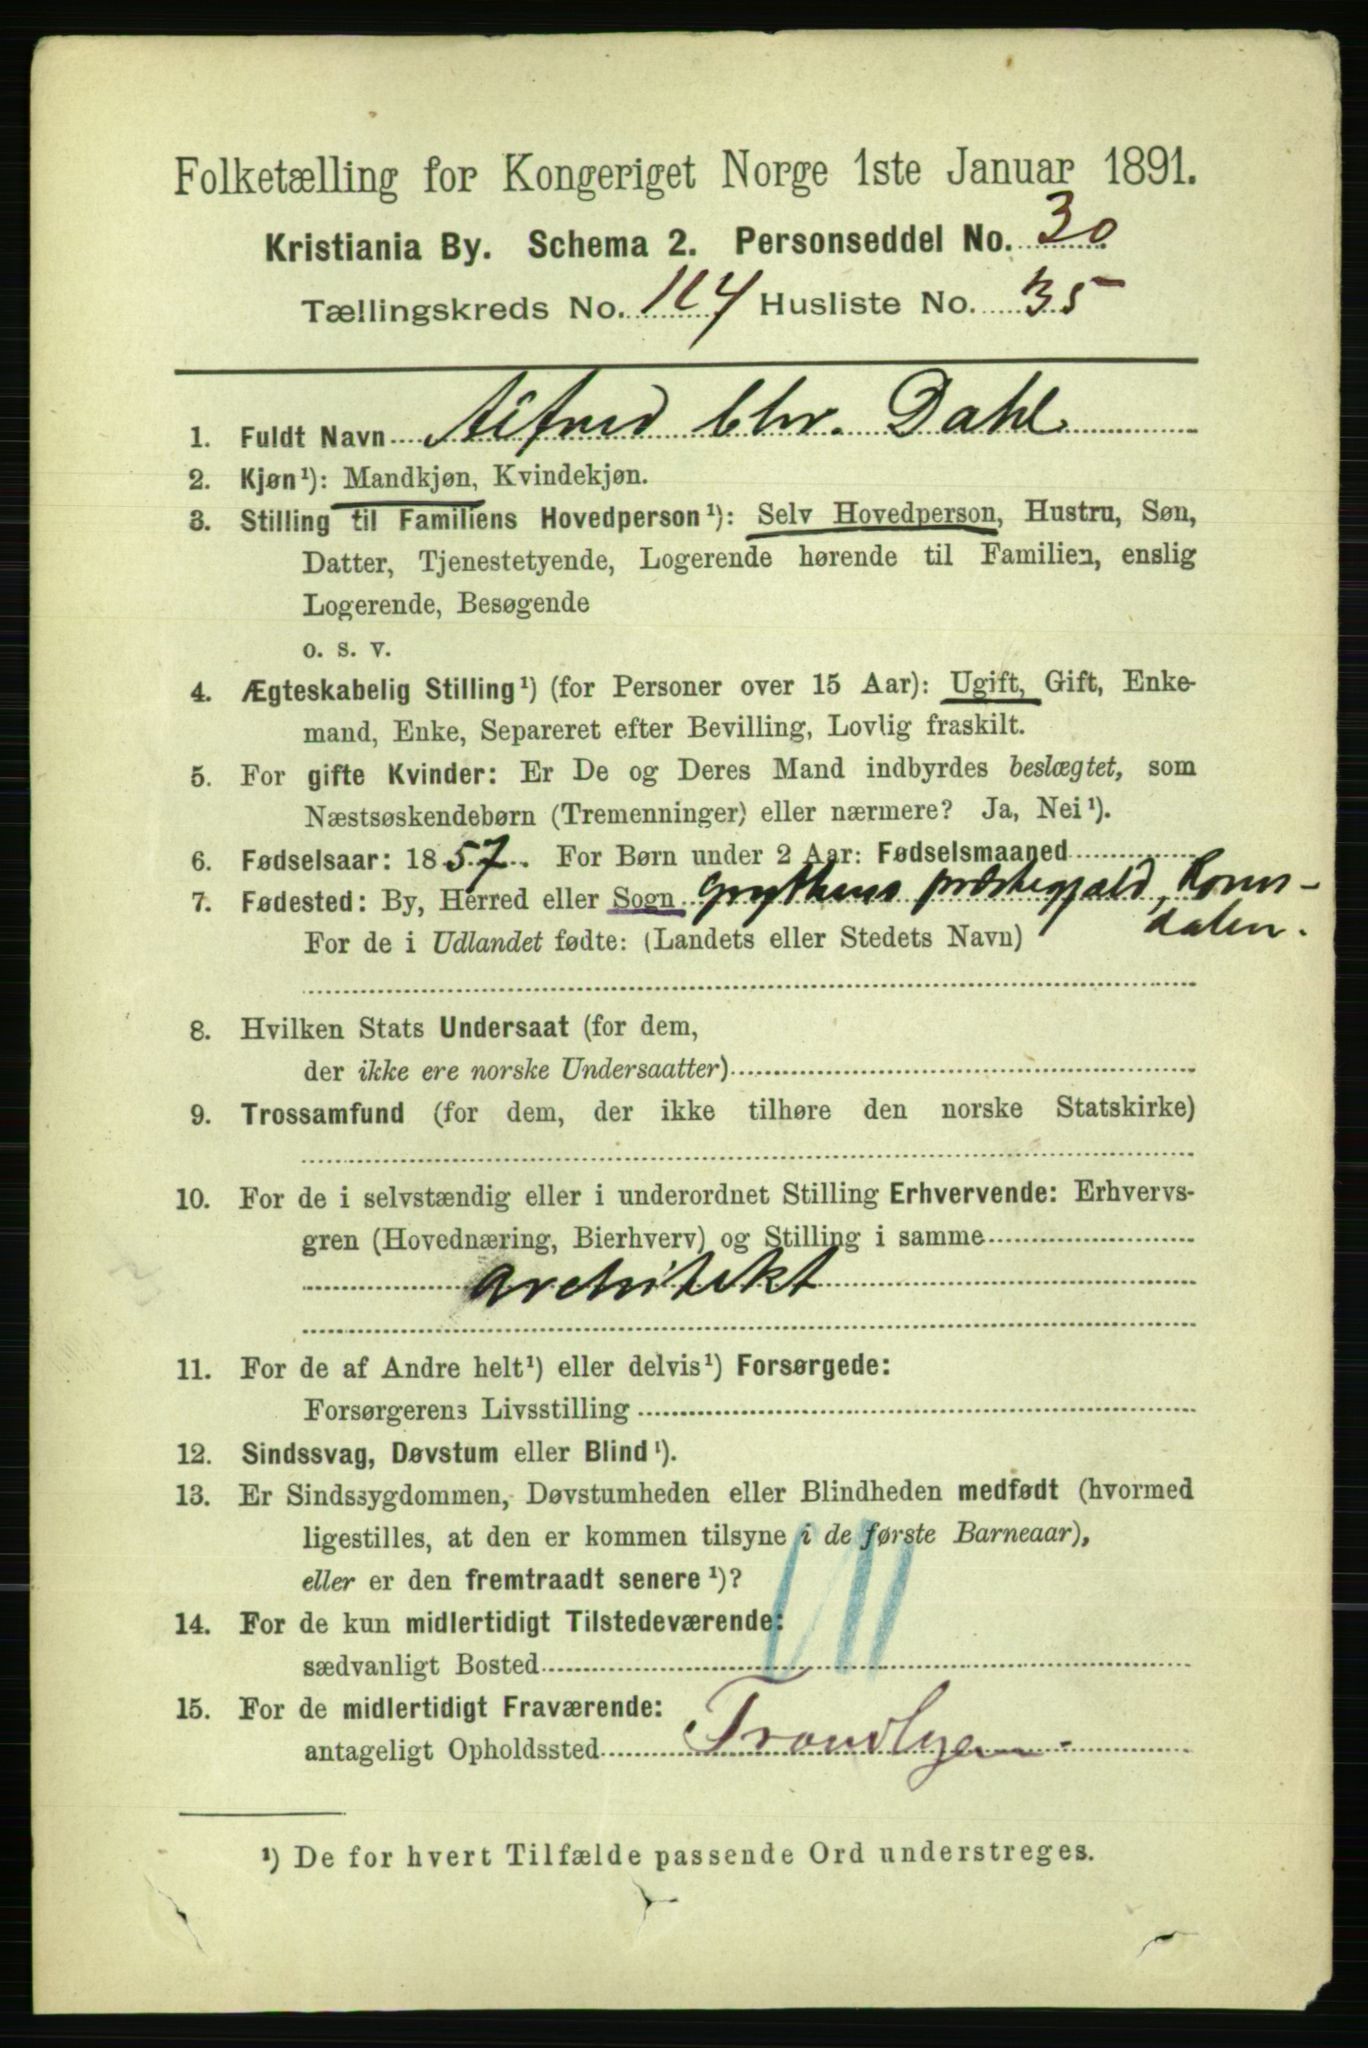 Folketælling for Kongeriget Norge 1ste Januar 1891.
Kristiania By. Schema 2. Personseddel No. 30
Tællingskreds No. 114 Husliste No. 35
1. Fuldt Navn Alfred Chr. Dahl
2. Kjøn¹): Mandkjøn, Kvindekjøn.
3. Stilling til Familiens Hovedperson¹): Selv Hovedperson, Hustru, Søn,
Datter, Tjenestetyende, Logerende hørende til Familien, enslig
Logerende, Besøgende
o. s. v.
4. Ægteskabelig Stilling¹) (for Personer over 15 Aar): Ugift, Gift, Enke-
mand, Enke, Separeret efter Bevilling, Lovlig fraskilt.
5. For gifte Kvinder: Er De og Deres Mand indbyrdes beslægtet, som
Næstsøskendebørn (Tremenninger) eller nærmere? Ja, Nei¹).
6. Fødselsaar: 1857. For Børn under 2 Aar: Fødselsmaaned
7. Fødested: By, Herred eller Sogn Grythens præstegjæld, Roms-
dalen.
For de i Udlandet fødte: (Landets eller Stedets Navn)
8. Hvilken Stats Undersaat (for dem,
der ikke ere norske Undersaatter)
9. Trossamfund (for dem, der ikke tilhøre den norske Statskirke)
10. For de i selvstændig eller i underordnet Stilling Erhvervende: Erhvervs-
gren (Hovednæring, Bierhverv) og Stilling i samme
Architekt
11. For de af Andre helt¹) eller delvis¹) Forsørgede:
Forsørgerens Livsstilling
12. Sindssvag, Døvstum eller Blind¹).
13. Er Sindssygdommen, Døvstumheden eller Blindheden medfødt (hvormed
ligestilles, at den er kommen tilsyne i de første Barneaar),
eller er den fremtraadt senere¹)?
14. For de kun midlertidigt Tilstedeværende:
sædvanligt Bosted
15. For de midlertidigt Fraværende:
antageligt Opholdssted Trondhjem
¹) De for hvert Tilfælde passende Ord understreges.